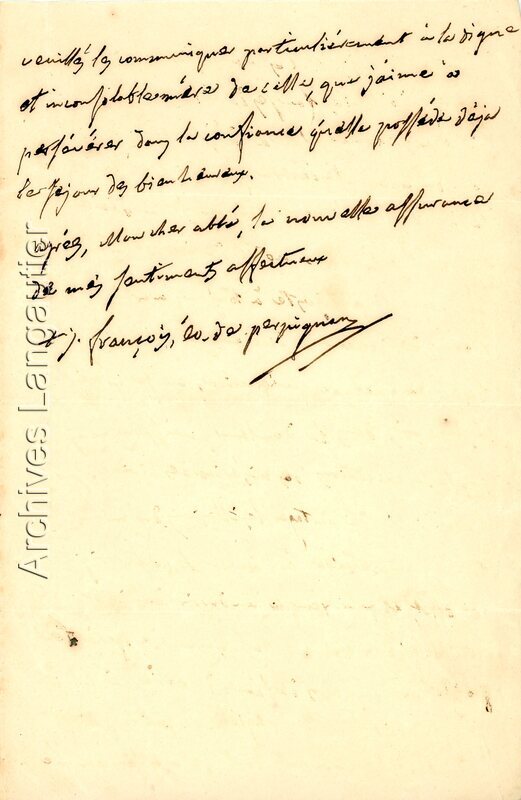 veuillés les communiquer particuliérement à la digne
et inconsolable mére de celle, que j'aime à
persévérer dans la confiance qu'elle posséde déja
le séjour des bienheureux.
agréés, Mon cher abbé, la nouvelle assurance
de més sentiments affectueux
+ j. françois, év. de perpignan
Archives Langautier